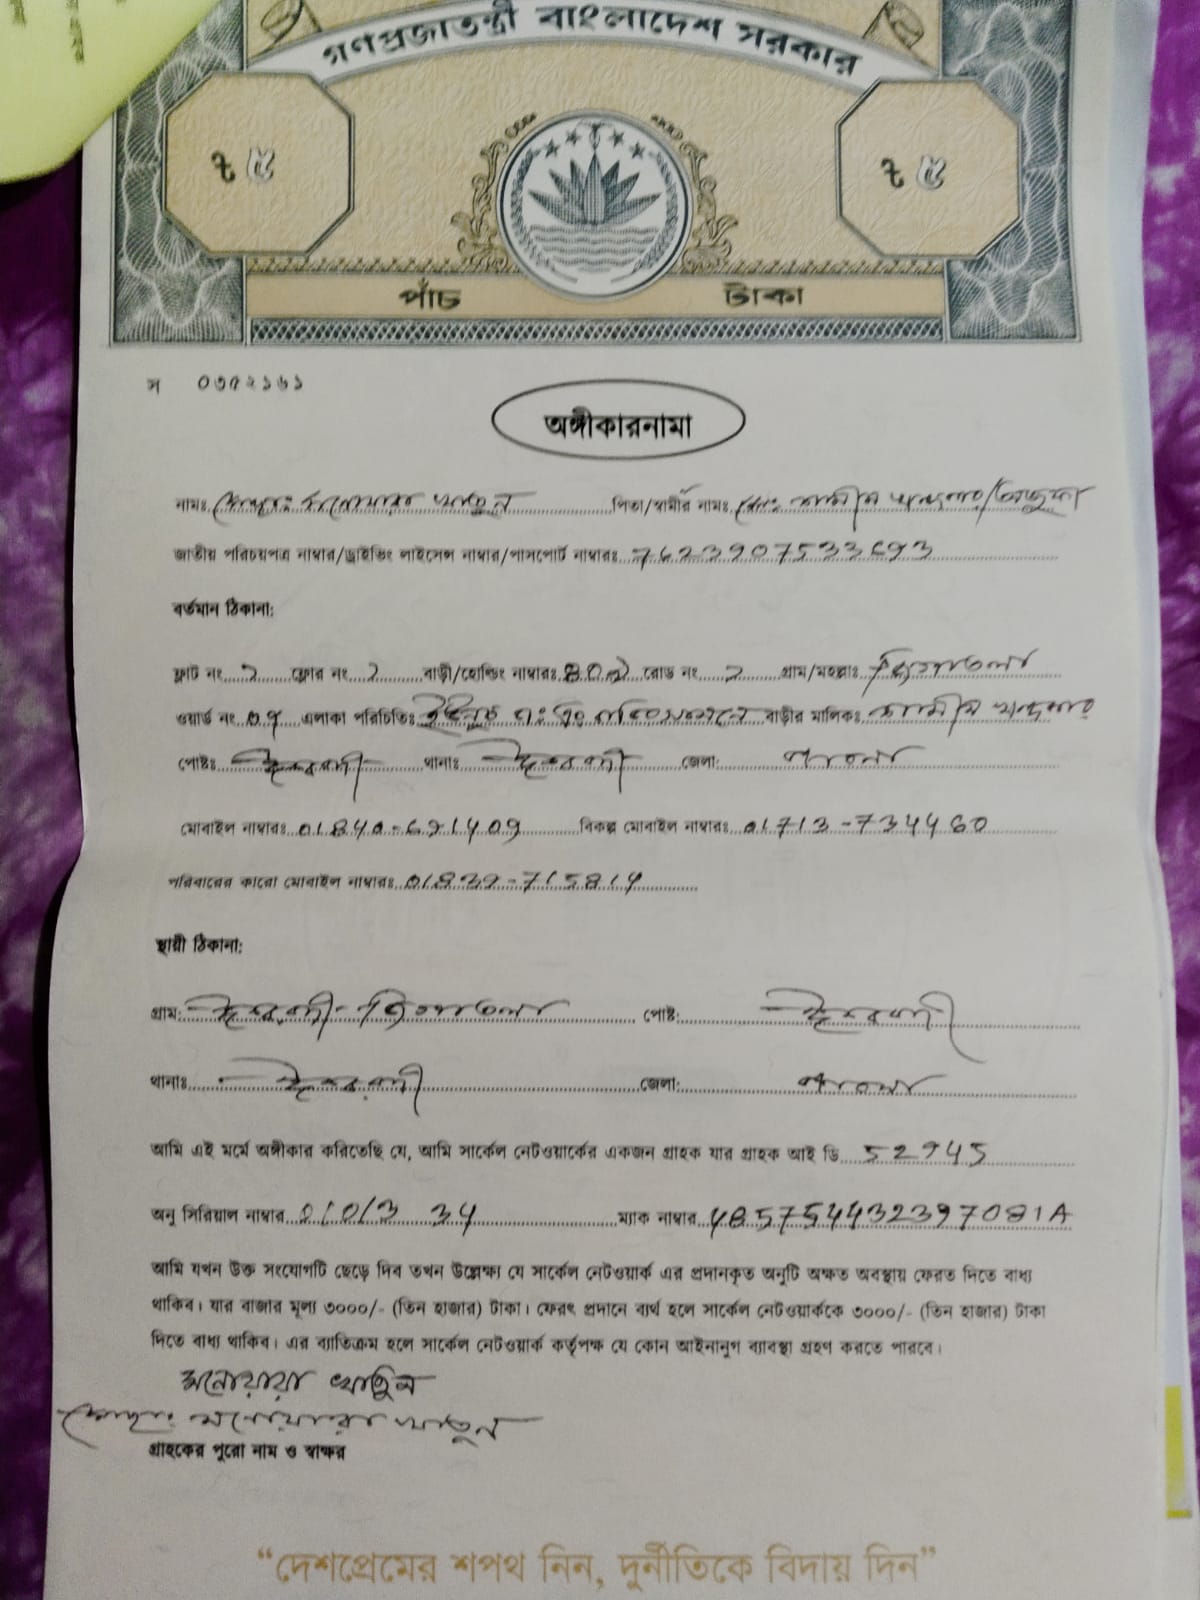 গণপ্রজাতন্ত্রী বাংলাদেশ সরকার
৳ ৫ ৳ ৫
পাঁচ টাকা
স ০৩৫২১৬১
অঙ্গীকারনামা
নামঃ মোছাঃ মনোয়ারা খাতুন পিতা/স্বামীর নামঃ মোঃ শামীম
জাতীয় পরিচয়পত্র নাম্বার/ড্রাইভিং লাইসেন্স নাম্বার/পাসপোর্ট নাম্বারঃ 7623907533693
বর্তমান ঠিকানা:
ফ্লাট নং ফ্লোর নং বাড়ী/হোল্ডিং নাম্বারঃ রোড নং গ্রাম/মহল্লাঃ
ওয়ার্ড নং ০৭ এলাকা পরিচিতিঃ বাড়ীর মালিকঃ শামীম
পোষ্টঃ ঈশ্বরদী থানাঃ ঈশ্বরদী জেলা: পাবনা
মোবাইল নাম্বারঃ বিকল্প মোবাইল নাম্বারঃ 01713-734460
পরিবারের কারো মোবাইল নাম্বারঃ 01839-715814
স্থায়ী ঠিকানা:
গ্রাম: ঈশ্বরদী পোষ্ট: ঈশ্বরদী
থানাঃ ঈশ্বরদী জেলা: পাবনা
আমি এই মর্মে অঙ্গীকার করিতেছি যে, আমি সার্কেল নেটওয়ার্কের একজন গ্রাহক যার গ্রাহক আই ডি 52945
অনু সিরিয়াল নাম্বার 01013 34 ম্যাক নাম্বার 485754432397081A
আমি যখন উক্ত সংযোগটি ছেড়ে দিব তখন উল্লেক্ষ্য যে সার্কেল নেটওয়ার্ক এর প্রদানকৃত অনুটি অক্ষত অবস্থায় ফেরত দিতে বাধ্য
থাকিব। যার বাজার মূল্য ৩০০০/- (তিন হাজার) টাকা। ফেরৎ প্রদানে ব্যর্থ হলে সার্কেল নেটওয়ার্ককে ৩০০০/- (তিন হাজার) টাকা
দিতে বাধ্য থাকিব। এর ব্যাতিক্রম হলে সার্কেল নেটওয়ার্ক কর্তৃপক্ষ যে কোন আইনানুগ ব্যাবস্থা গ্রহণ করতে পারবে।
মনোয়ারা খাতুন
মোছাঃ মনোয়ারা খাতুন
গ্রাহকের পুরো নাম ও স্বাক্ষর
“দেশপ্রেমের শপথ নিন, দুর্নীতিকে বিদায় দিন”